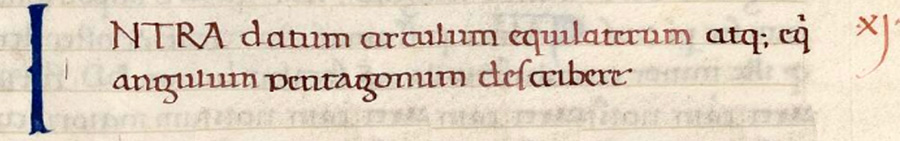 INTRA datum circulum equilaterum atq; eq̇ xj
angulum pentagonum describere